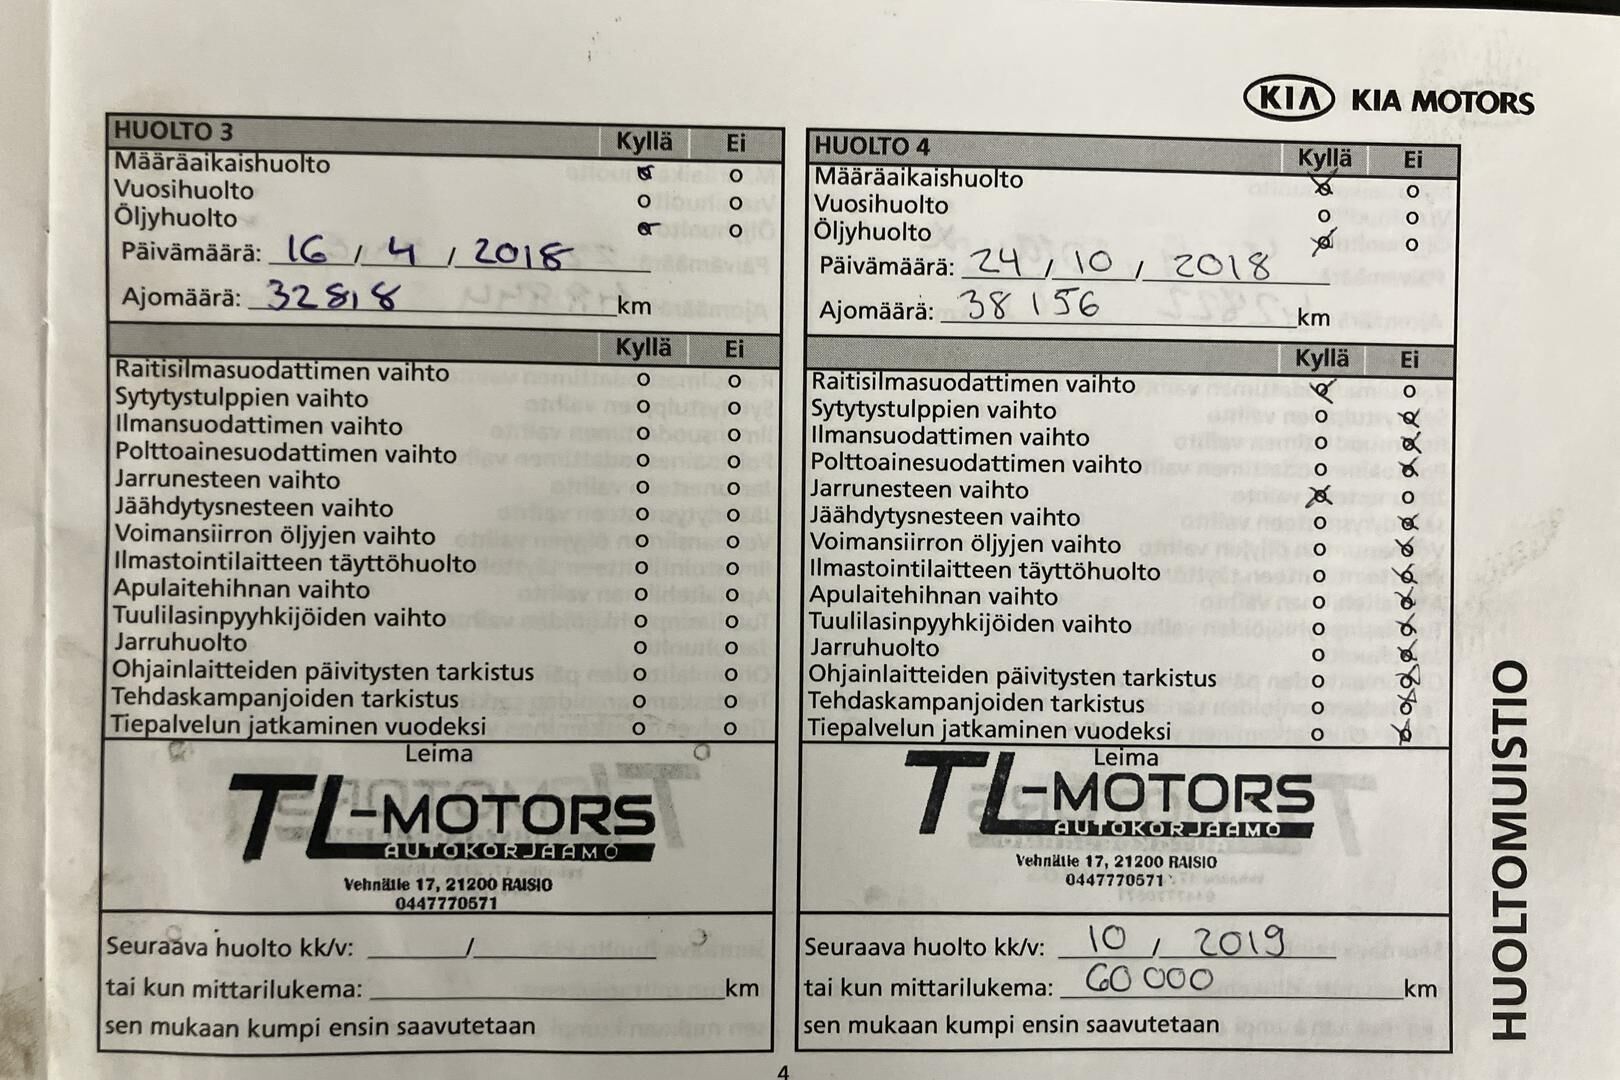 KIA KIA MOTORS
HUOLTO 3 Kyllä Ei
Määräaikaishuolto o o
Vuosihuolto o o
Öljyhuolto o o
Päivämäärä: 16 / 4 / 2018
Ajomäärä: 32818 km
Kyllä Ei
Raitisilmasuodattimen vaihto o o
Sytytystulppien vaihto o o
Ilmansuodattimen vaihto o o
Polttoainesuodattimen vaihto o o
Jarrunesteen vaihto o o
Jäähdytysnesteen vaihto o o
Voimansiirron öljyjen vaihto o o
Ilmastointilaitteen täyttöhuolto o o
Apulaitehihnan vaihto o o
Tuulilasinpyyhkijöiden vaihto o o
Jarruhuolto o o
Ohjainlaitteiden päivitysten tarkistus o o
Tehdaskampanjoiden tarkistus o o
Tiepalvelun jatkaminen vuodeksi o o
Leima
TL-MOTORS
AUTOKORJAAMO
Vehnätie 17, 21200 RAISIO
0447770571
Seuraava huolto kk/v: /
tai kun mittarilukema: km
sen mukaan kumpi ensin saavutetaan
HUOLTO 4 Kyllä Ei
Määräaikaishuolto o o
Vuosihuolto o o
Öljyhuolto o o
Päivämäärä: 24 / 10 / 2018
Ajomäärä: 38 156 km
Kyllä Ei
Raitisilmasuodattimen vaihto o o
Sytytystulppien vaihto o o
Ilmansuodattimen vaihto o o
Polttoainesuodattimen vaihto o o
Jarrunesteen vaihto o o
Jäähdytysnesteen vaihto o o
Voimansiirron öljyjen vaihto o o
Ilmastointilaitteen täyttöhuolto o o
Apulaitehihnan vaihto o o
Tuulilasinpyyhkijöiden vaihto o o
Jarruhuolto o o
Ohjainlaitteiden päivitysten tarkistus o o
Tehdaskampanjoiden tarkistus o o
Tiepalvelun jatkaminen vuodeksi o o
Leima
TL-MOTORS
AUTOKORJAAMO
Vehnätie 17, 21200 RAISIO
0447770571
Seuraava huolto kk/v: 10 / 2019
tai kun mittarilukema: 60 000 km
sen mukaan kumpi ensin saavutetaan
HUOLTOMUISTIO
4